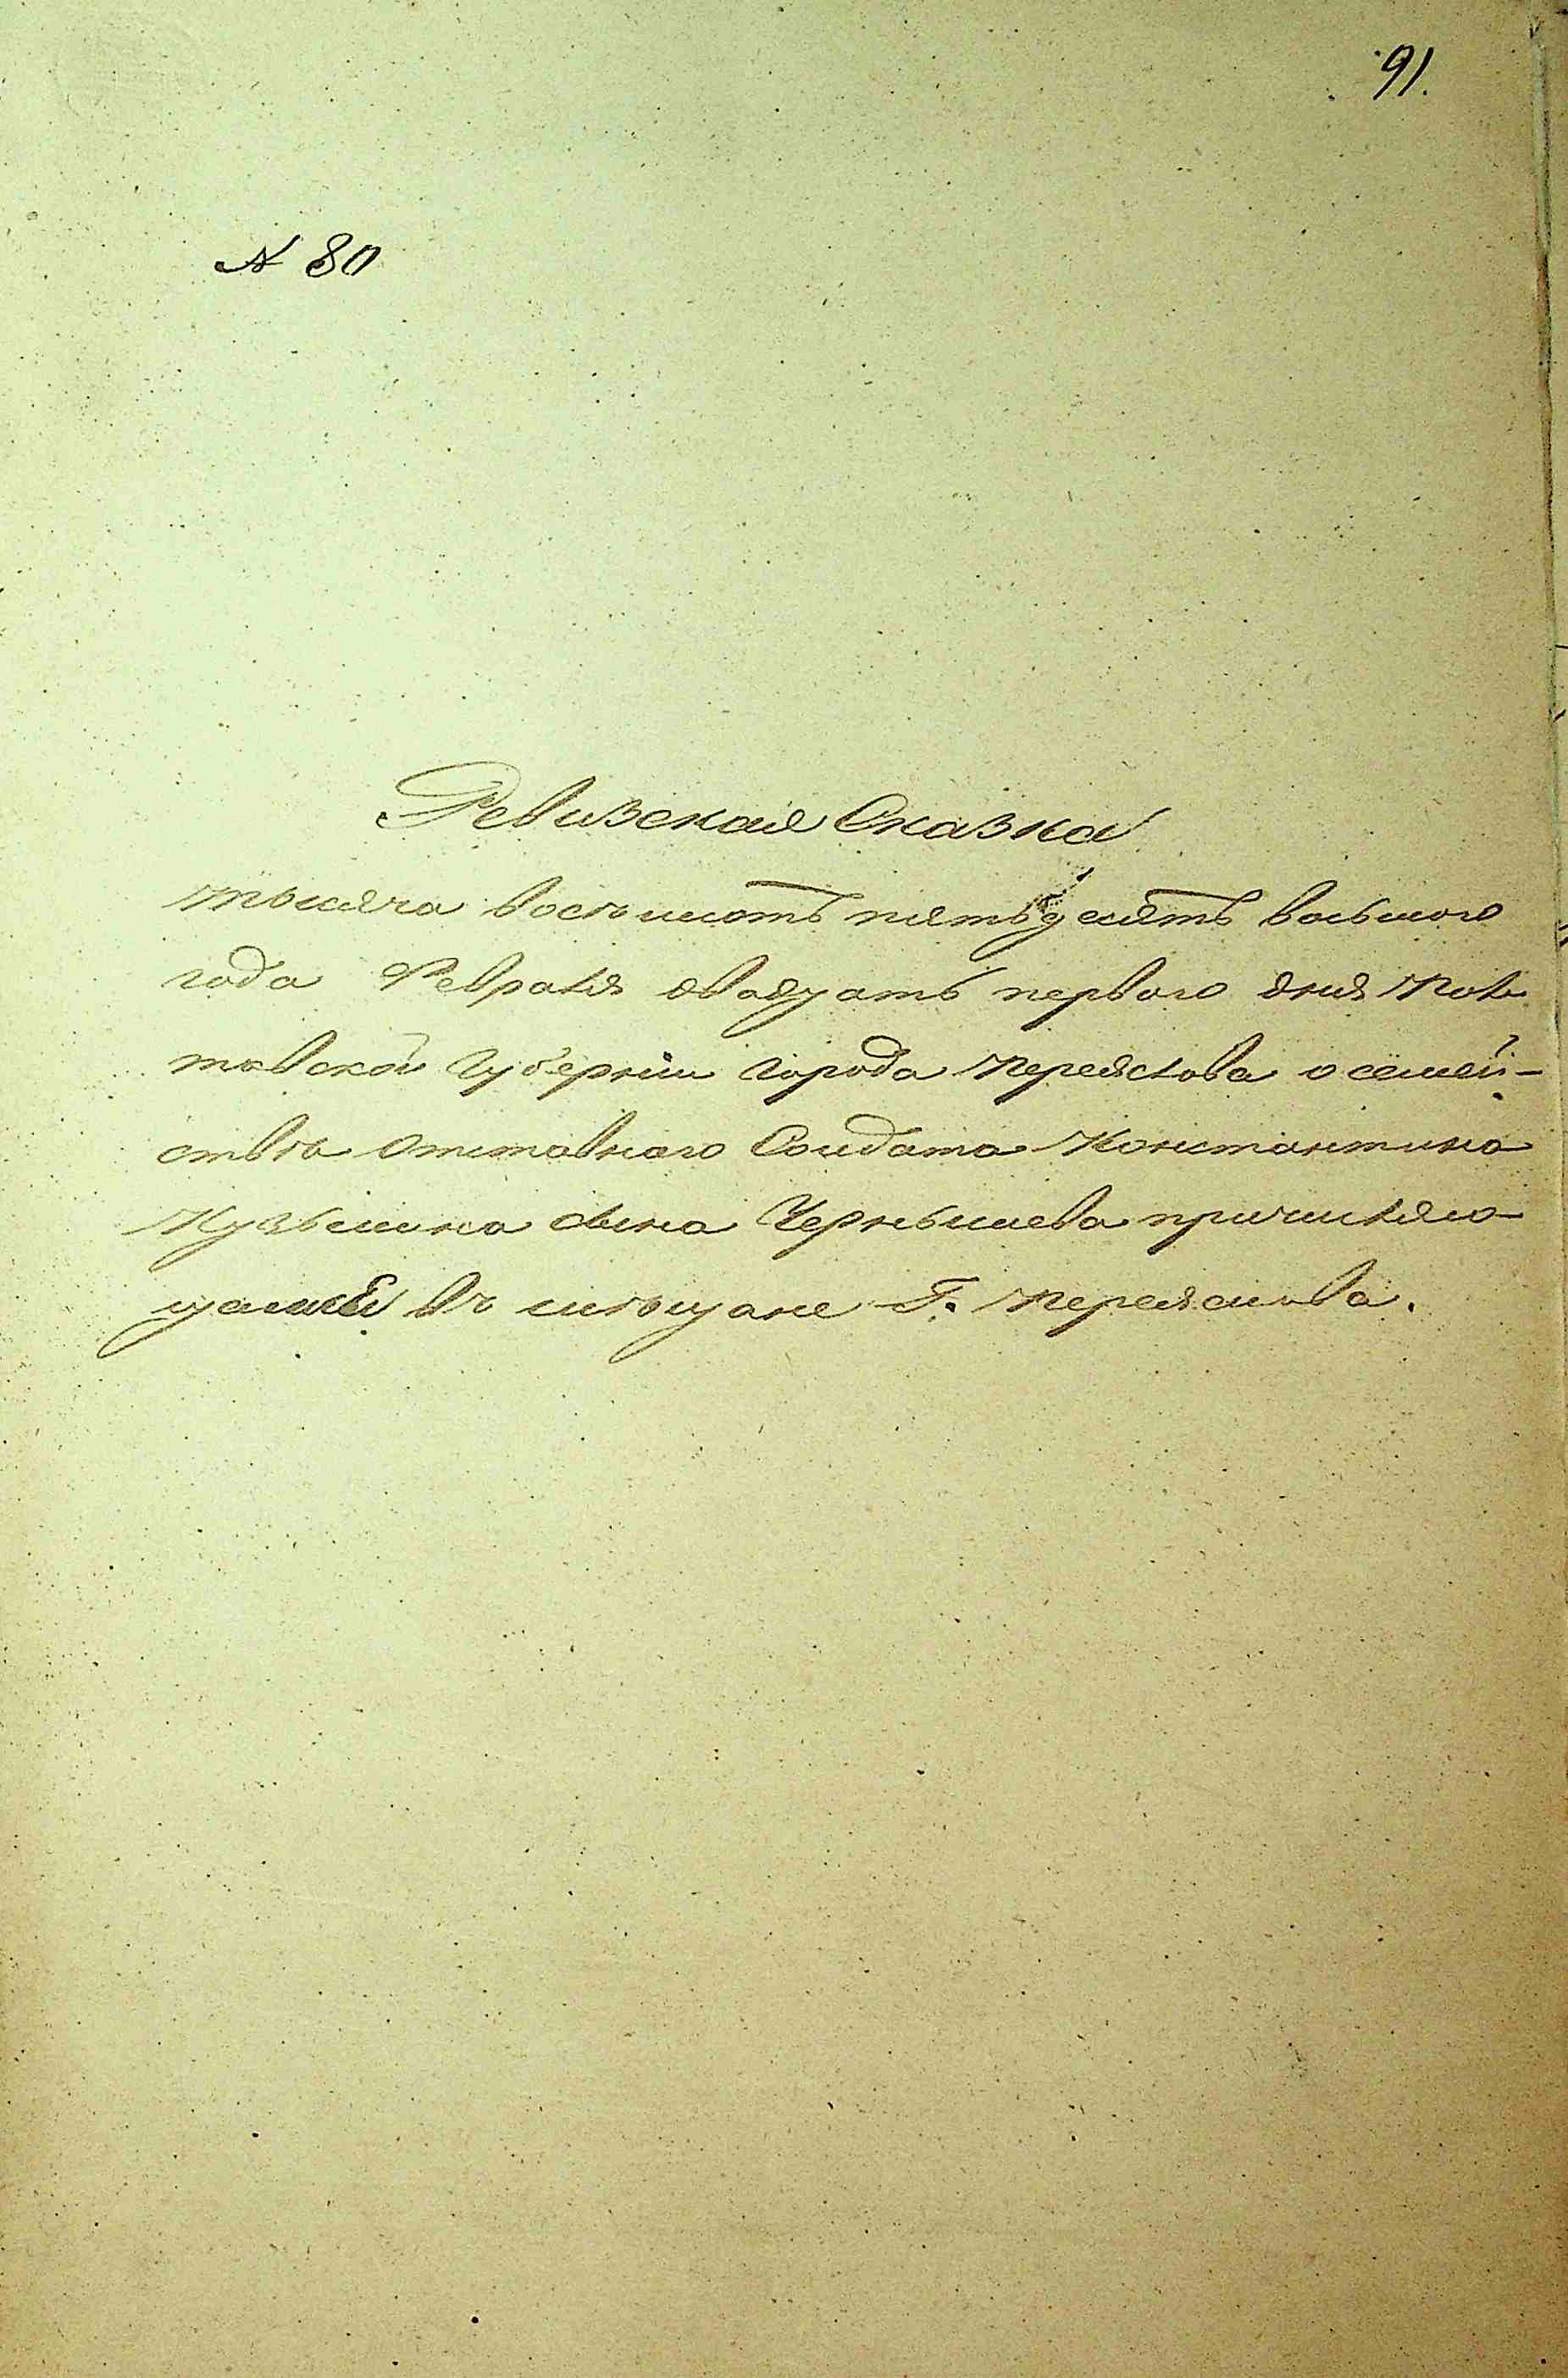 91.
№ 80
Ревизская Сказка
тысяча восъмсотъ пятьдесятъ восьмого
года Февраля двадцать первого дня Пол
тавской Губернiи города Переяслова о семей-
ствъ отставнаго Солдата Константина
Кузьмина сына Чернышева причисляю-
щамся въ мъщане Г. Переяслова.